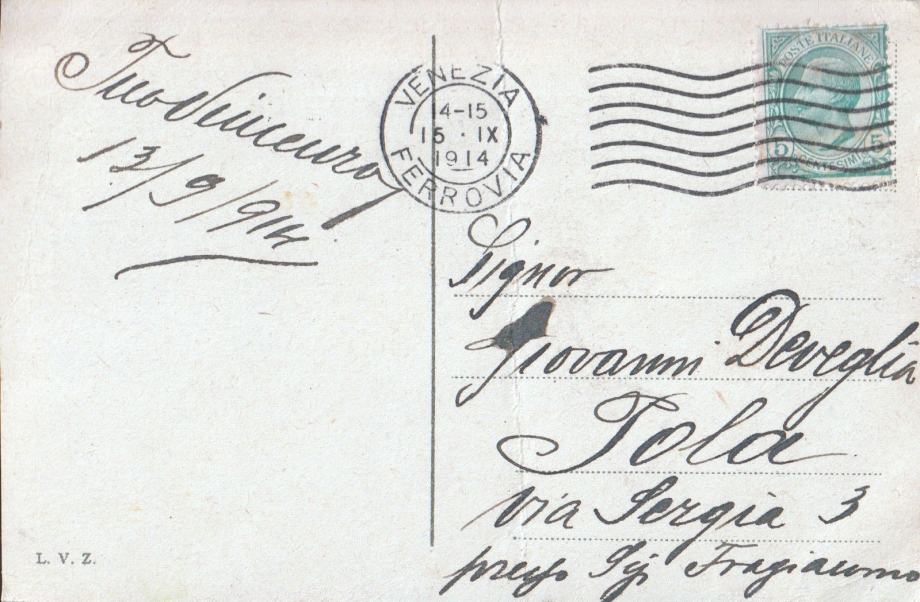 Tuo Vincenzo
13/9/914
VENEZIA
14-15
15 · IX
1914
FERROVIA
POSTE ITALIANE
5 5
CENTESIMI
Signor
Giovanni Deveglia
Pola
via Sergia 3
presso Sig. Fragiacomo
L. V. Z.